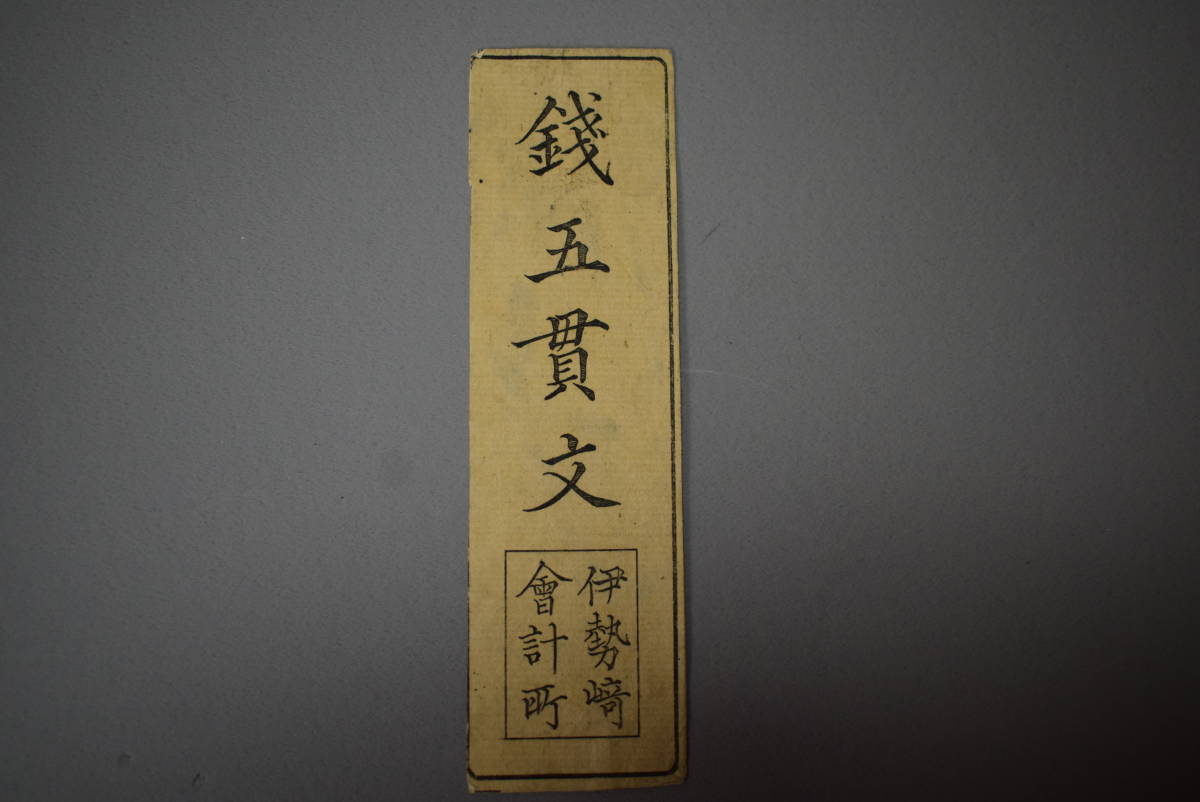 錢五貫文
伊勢﨑
會計所